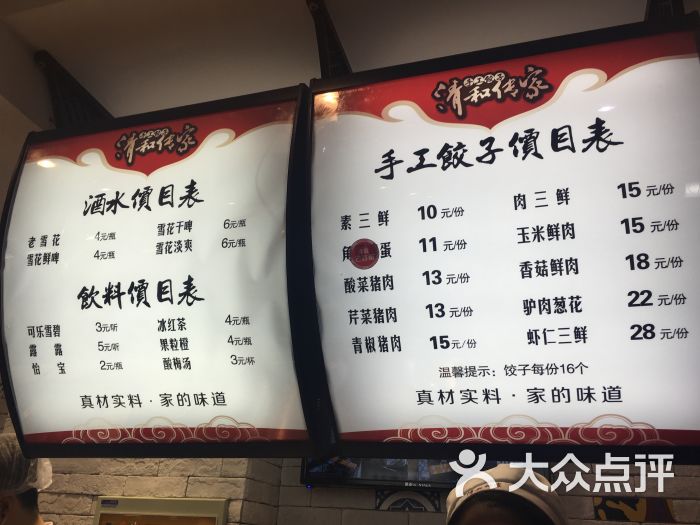 手工饺子
清和传家
酒水價目表
老雪花 4元/瓶 雪花干啤 6元/瓶
雪花鲜啤 4元/瓶 雪花淡爽 6元/瓶
飲料價目表
可乐雪碧 3元/听 冰红茶 4元/瓶
露露 5元/听 果粒橙 4元/瓶
怡宝 2元/瓶 酸梅汤 3元/杯
真材实料·家的味道
手工餃子
清和传家
手工餃子價目表
素三鲜 10元/份 肉三鲜 15元/份
角 蛋 11元/份 玉米鲜肉 15元/份
酸菜猪肉 13元/份 香菇鲜肉 18元/份
芹菜猪肉 13元/份 驴肉葱花 22元/份
青椒猪肉 15元/份 虾仁三鲜 28元/份
温馨提示：饺子每份16个
真材实料·家的味道
大众点评